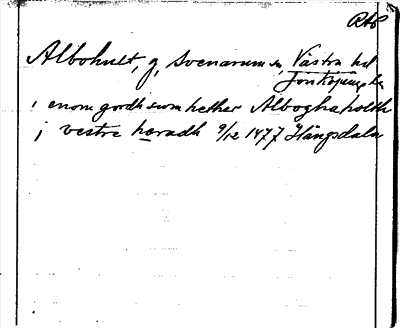 Albohult, g, Svenarum sn, Västra hd
Jönköpings län
i enom gordh som hether Albogha holth
i vestre heradh 9/12 1477 Hångsdala